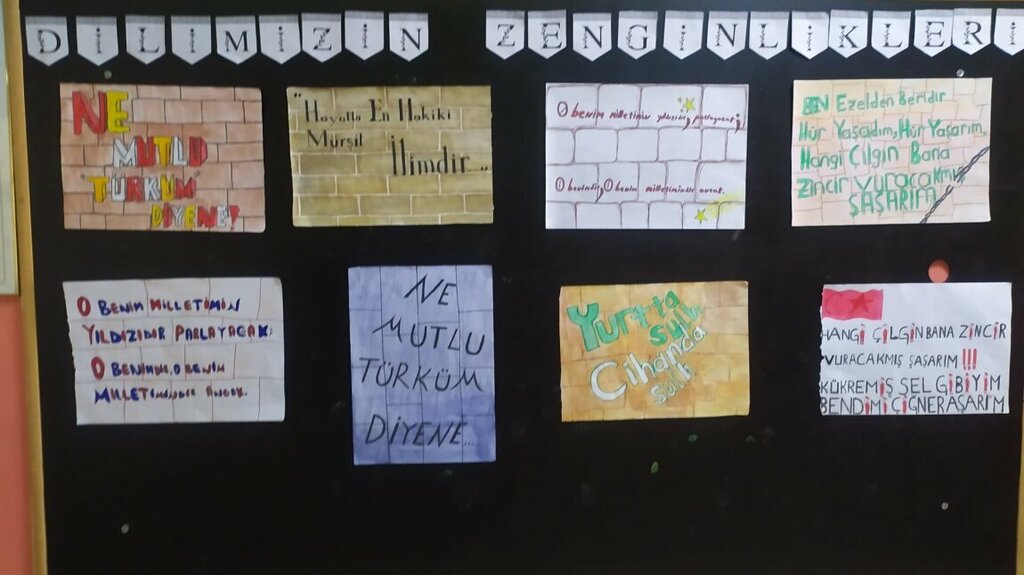 DİLİMİZİN ZENGİNLİKLERİ
NE
MUTLU
"TÜRKÜM"
DİYENE!
"Hayatta En Hakiki
Mürşit
İlimdir"
O benim milletimin yıldızıdır parlayacak;
O benimdir, O benim milletimindir ancak.
BEN Ezelden Beridir
Hür Yaşadım, Hür Yaşarım.
Hangi Çılgın Bana
Zincir Vuracakmış
ŞAŞARIM
O BENİM MİLLETİMİN
YILDIZIDIR PARLAYACAK;
O BENİMDİR, O BENİM
MİLLETİMİNDİR ANCAK.
NE
MUTLU
TÜRKÜM
DİYENE...
Yurtta
Sulh
Cihanda
Sulh
HANGİ ÇILGIN BANA ZİNCİR
VURACAKMIŞ ŞAŞARIM !!!
KÜKREMİŞ SEL GİBİYİM
BENDİMİ ÇİĞNER AŞARIM